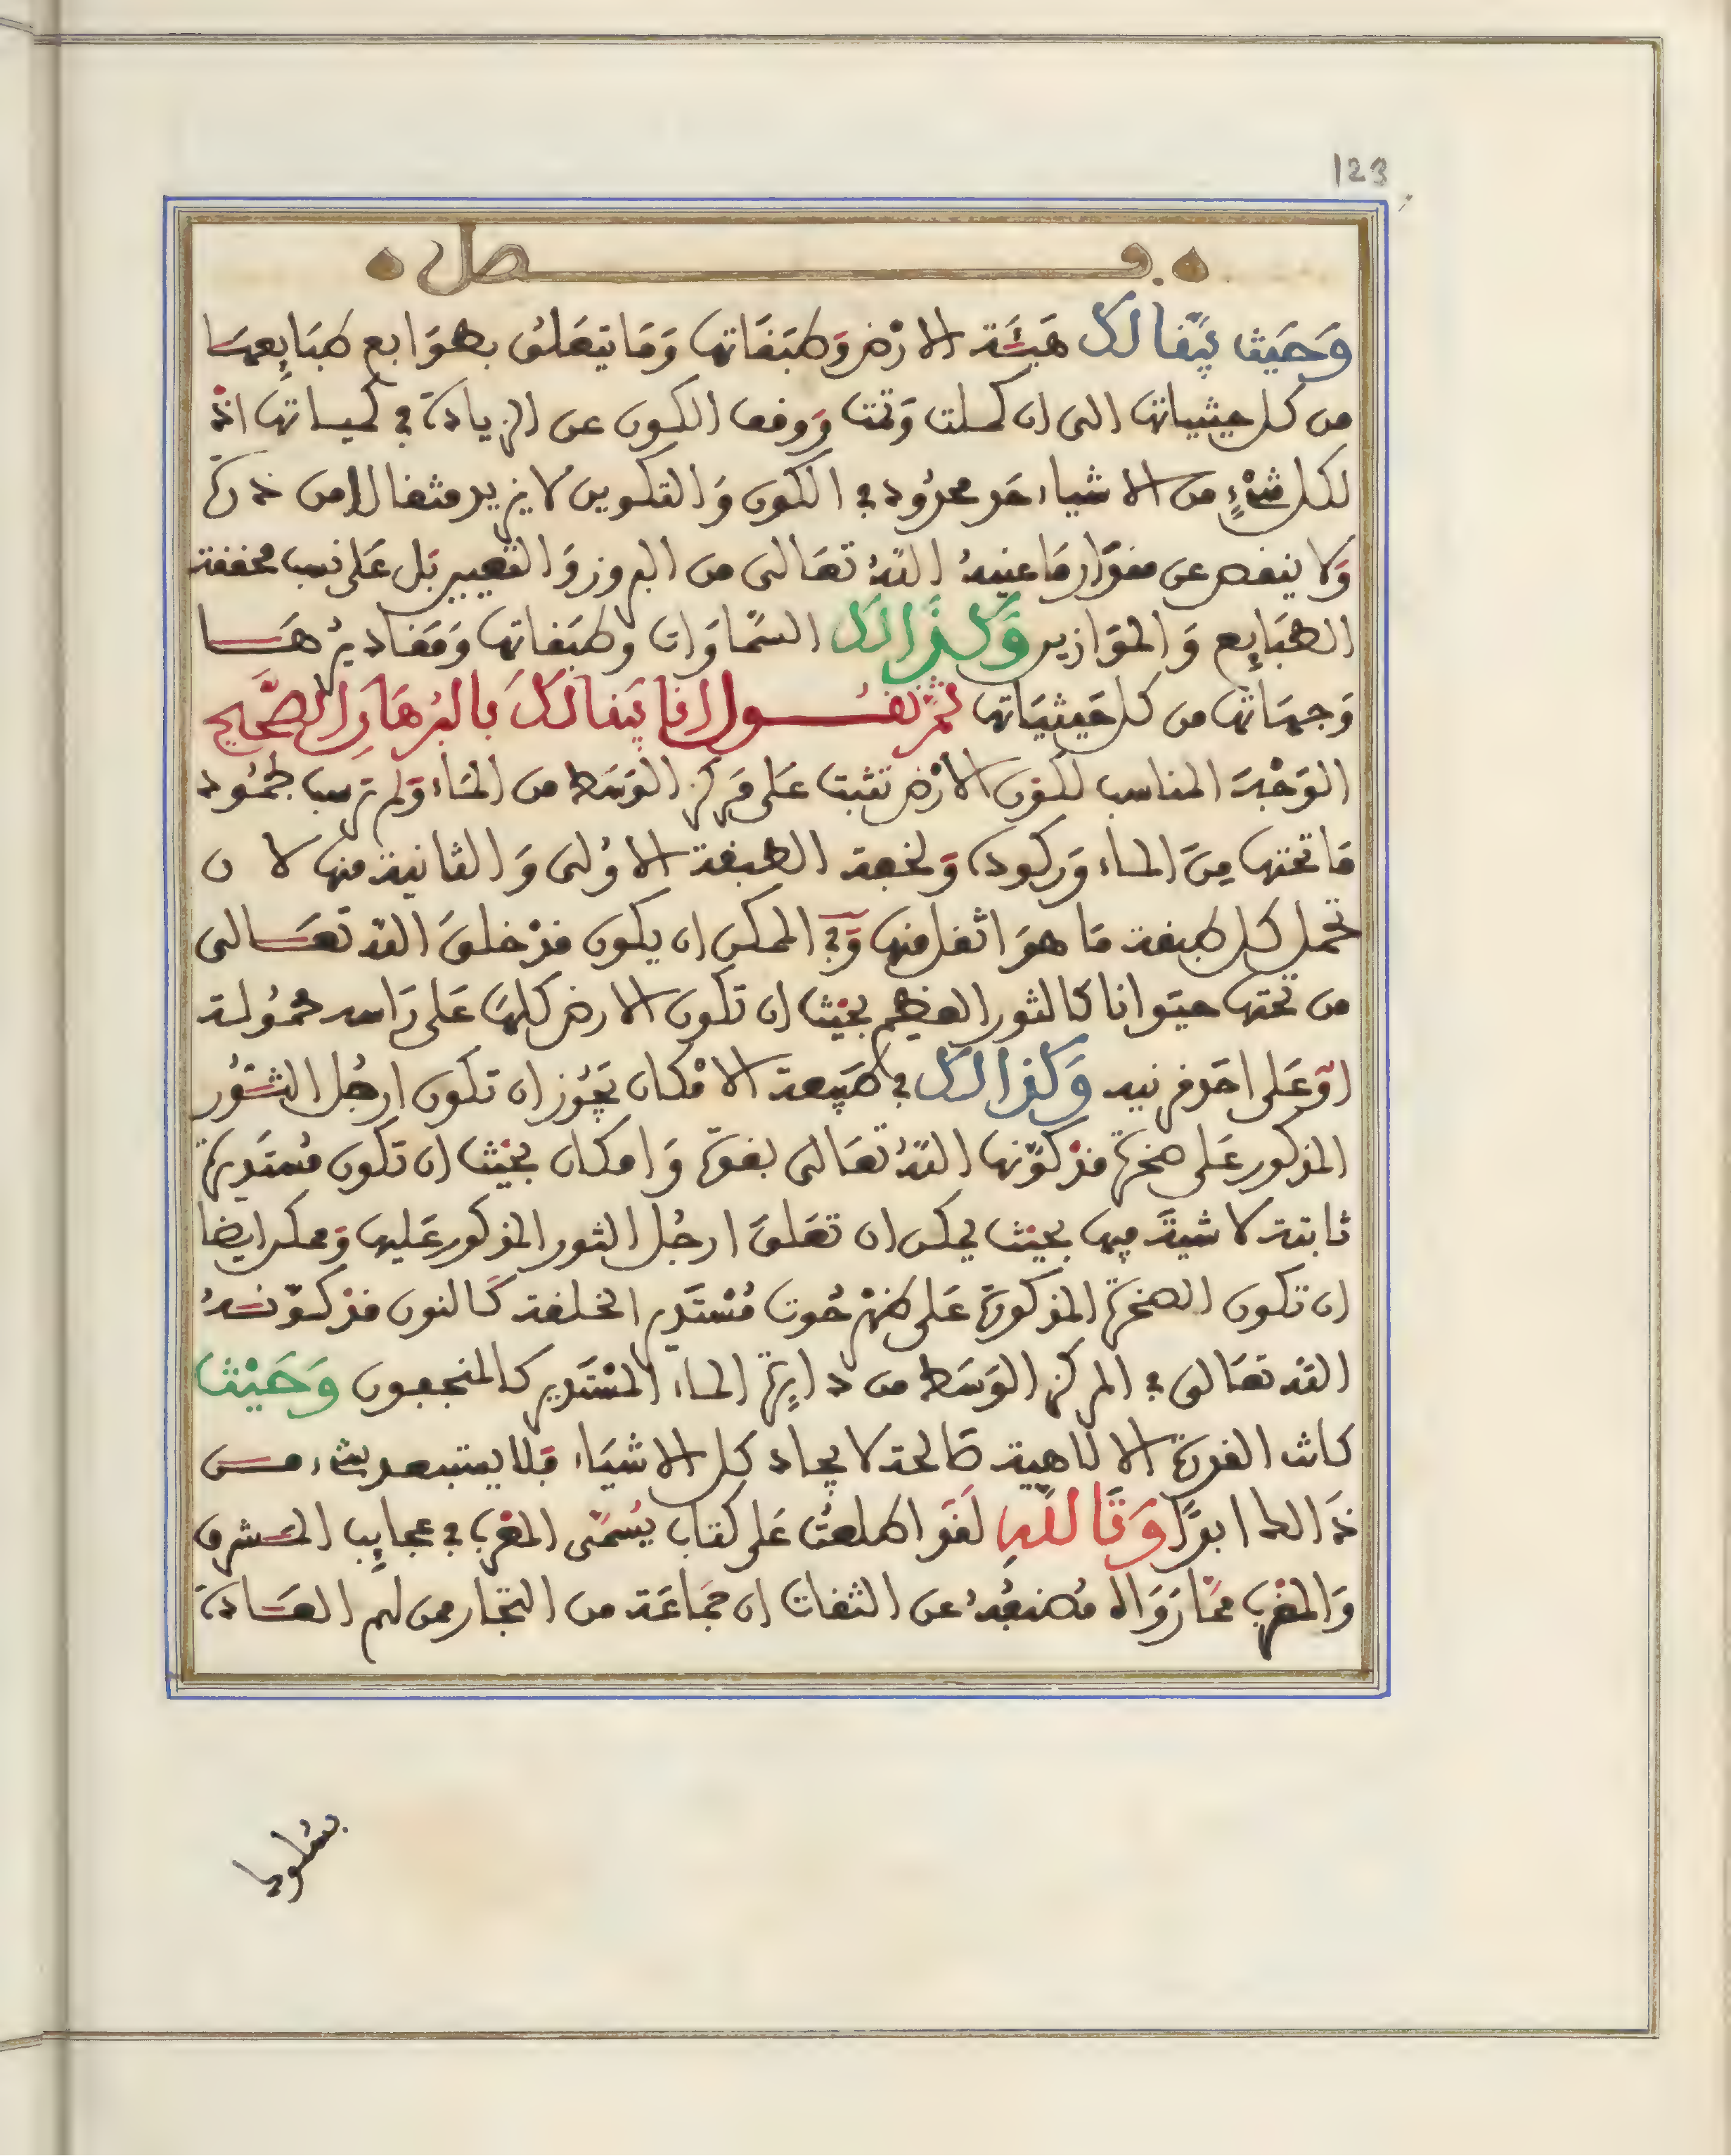 123
فصل
وَحَيث بيَّنا لَكَ هَيئَة الارْض وَطبَقَاتها وَمَا يتعَلق بطوَابع طبَايِعهَا
من كل حيثياتها التى ان كملت وَتمت ووقف الكون عن الزيادة فى كمياتها اذْ
لكل شىْءٍ من الاشياء حَد محدُود فى الكون وَالتكوين لا يزيد مثقالا من ذرة
وَلا ينقص عن مقدَار مَا عينهُ اللهُ تعَالى من البروز وَالتعيير بَل عَلى نسب محققة
الطبَايِع وَالموَازين وَكذَالكَ السمَاوَات وطبَقاتها وَمَقاديرُهَا
وَجهَاتها من كل حَيثيَاتها ثمَّ نقُول انا بيَنا لَكَ بالبُرهَان الصَّحيح
الوَجْهَ المناسب لكون الارْض تثبت عَلى مَركز الوَسَط من المَاء وَلم ترسب لجمُود
مَا تحتها مِنَ الماء وَركوده وَلخفة الطبقة الاوُلى وَالثانية منها لان
تحمل كل طبقة مَا هوَ اثقل منها وَفى الممكن ان يكون قدْ خلقَ الله تعَالى
من تحتها حيَوانا كالثور العظيم بحَيْث ان تكون الارض كلهَا عَلى رَاسه محمُولة
اوْ عَلى احَد قرنيه وَكذالكَ فى طبَيعة الامْكان يَجُوز ان تكون ارجُل الثوُر
المذكور عَلى صخرة قدْ كوَّنها اللهُ تعَالى بقوة وَامكان بحَيْث ان تكون مُستَديرة
ثابتة لا شيَةَ فيها بحيْث يمكن ان تعَلقَ ارجُل الثور المذكور عَليها وَممكن ايضا
ان تكون الصخرة المذكورة عَلى ظهْر حُوت مُسْتَدير الخلقة كَالنون قدْ كوّنهُ
الله تعَالى فى المركز الوَسَط من دايِرة الماء المسْتَدير كالمنجعون وَحَيْث
كانت القدرة الالاهيَة صَالحة لايجاد كل الاشيَاء فَلا يستبعد شىء من
ذَالك ابدًا وَتَاللّهِ لقَد اطلعتُ عَلى كتاب يُسَمَّى المغْرب فى عجايِب المشرق
وَالمغْرب ممَّا رَوَاهُ مُصَنفُهُ عن الثقات ان جمَاعَة من التجّار ممن لهم العَادة
بسُلوك